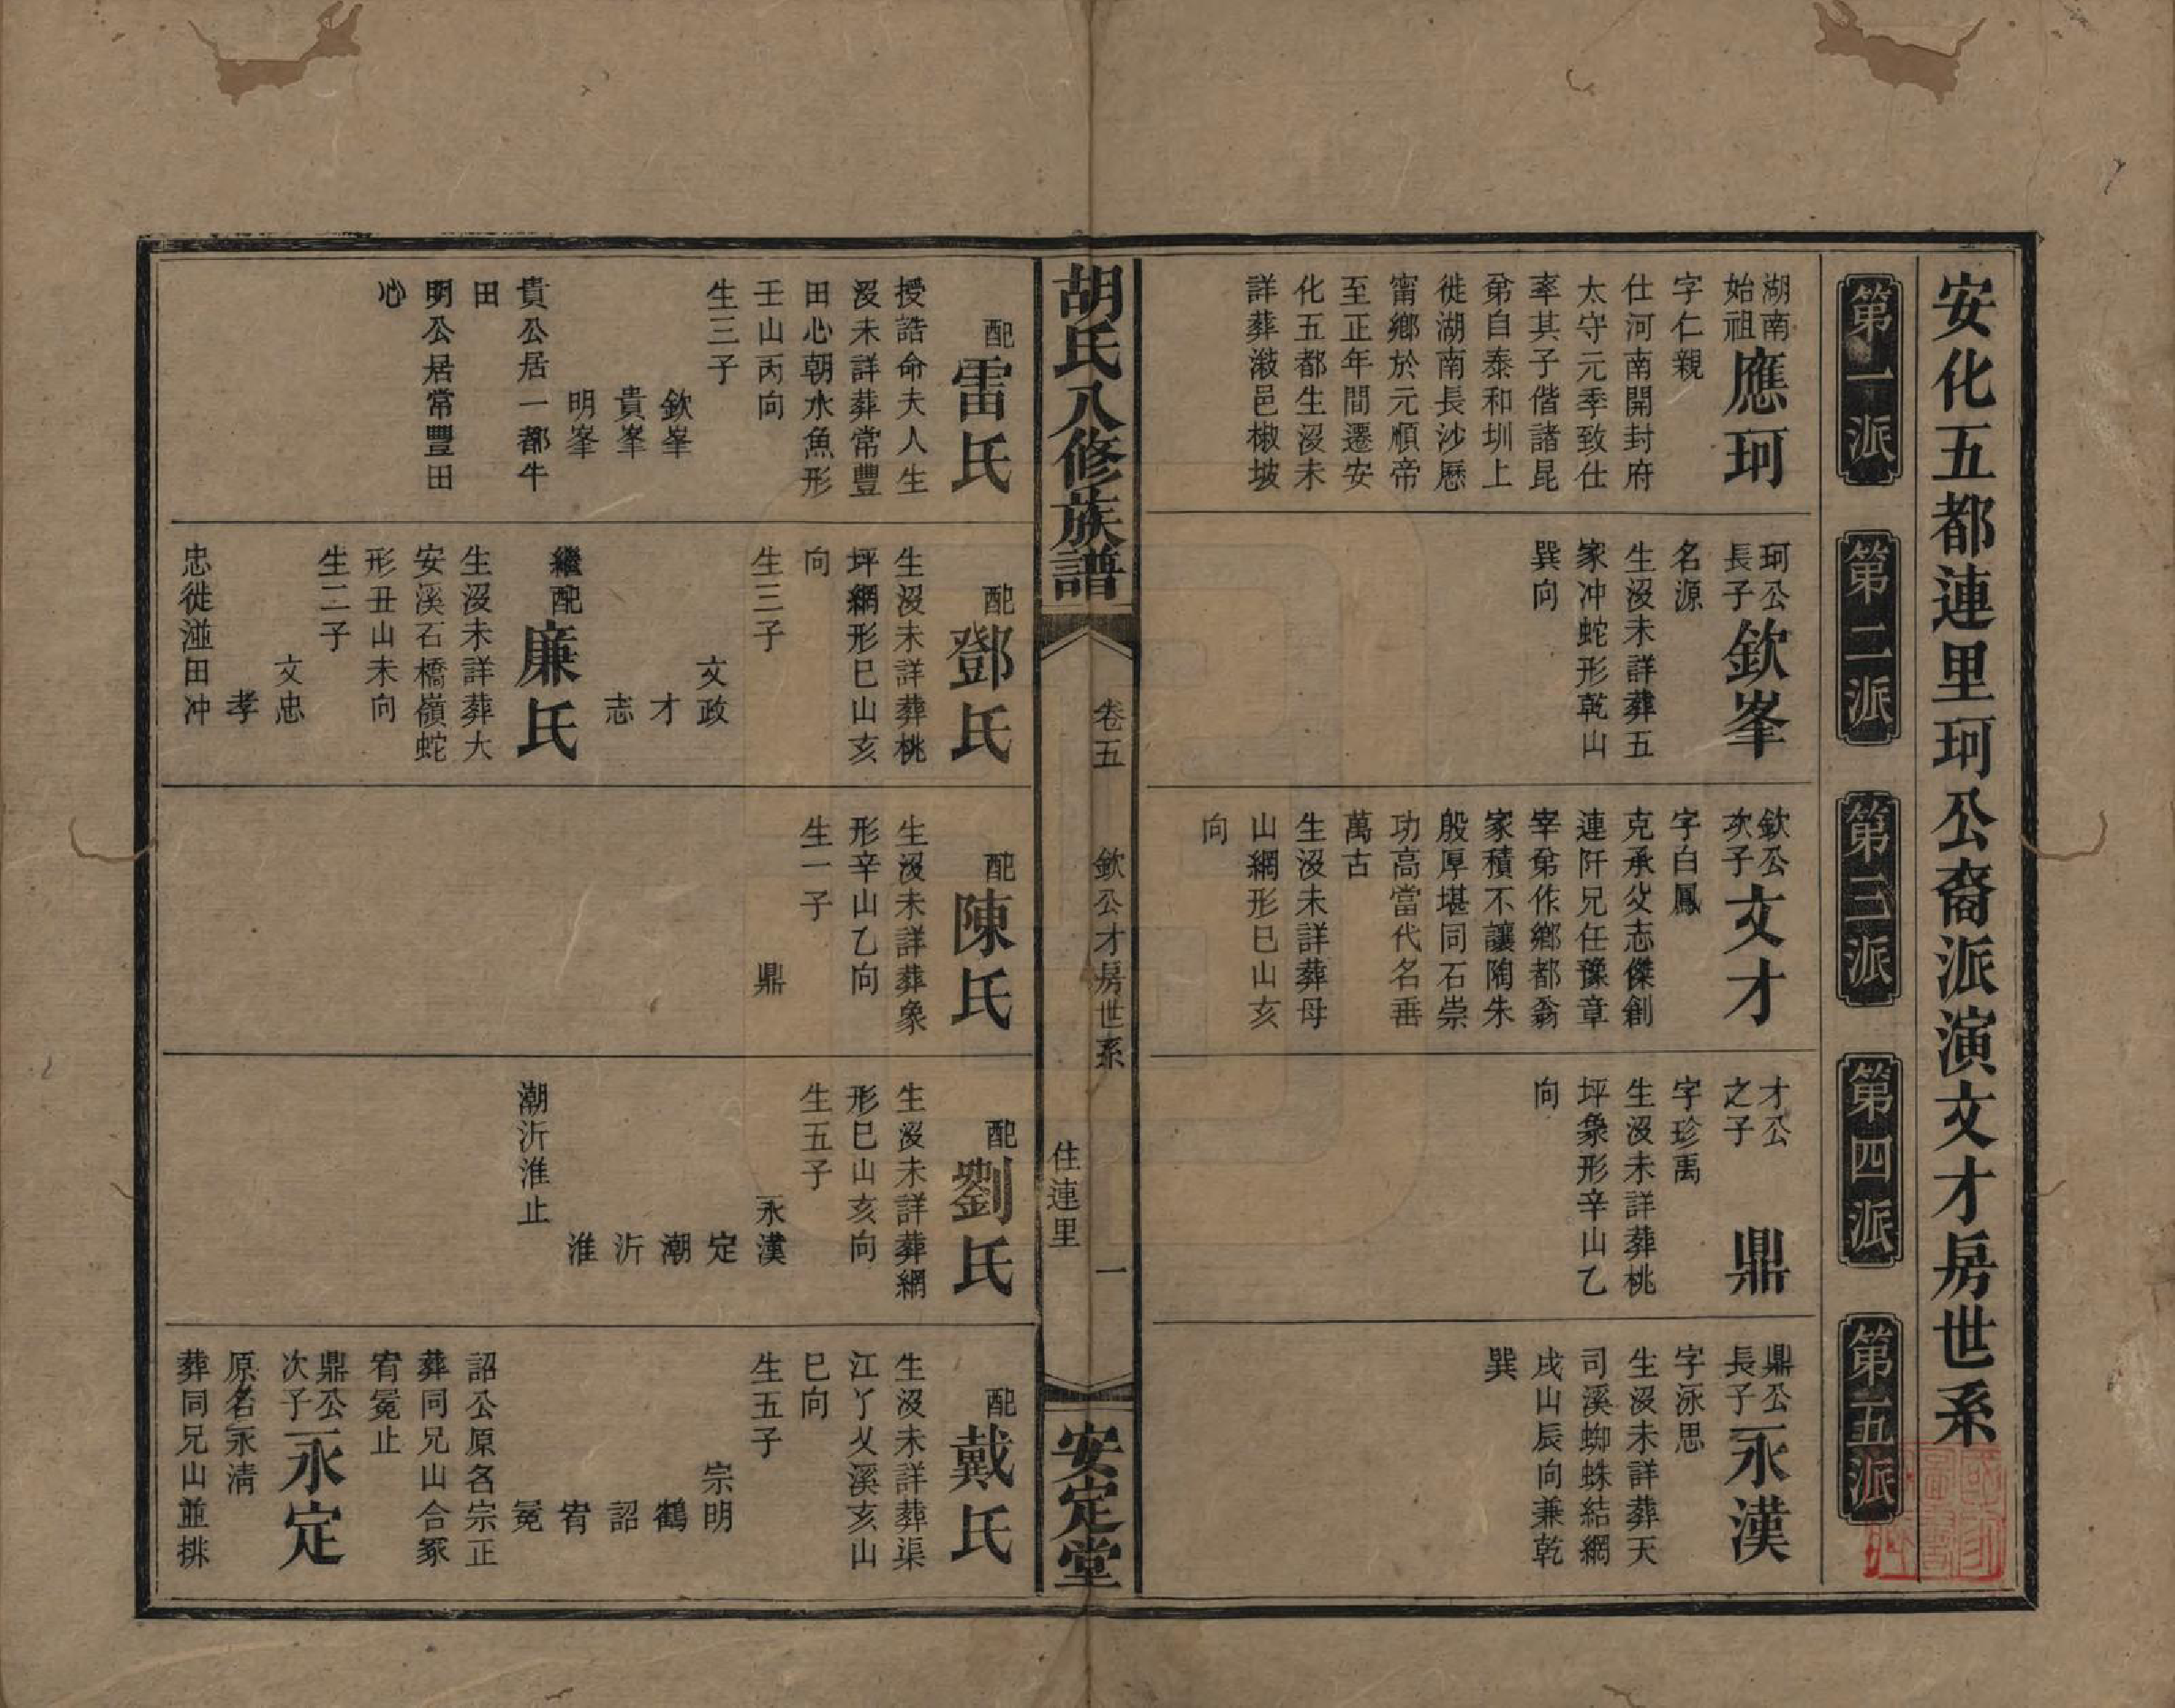 安化五都連里珂公裔派演文才房世系
第一派
第二派
第三派
第四派
第五派
湖南
始祖
應珂
字仁親
仕河南開封府
太守元季致仕
率其子偕諸昆
弟自泰和圳上
徙湖南長沙歷
甯鄉於元順帝
至正年間遷安
化五都生沒未
詳葬漵邑椒坡
珂公
長子
欽峯
名源
生沒未詳葬五
家冲蛇形乾山
巽向
欽公
次子
文才
字白鳳
克承父志傑創
連阡兄任豫章
宰弟作鄉都翁
家積不讓陶朱
殷厚堪同石崇
功高當代名垂
萬古
生沒未詳葬母
山網形巳山亥
向
才公
之子
鼎
字珍禹
生沒未詳葬桃
坪象形辛山乙
向
鼎公
長子
永漢
字泳思
生沒未詳葬天
司溪蜘蛛結網
戌山辰向兼乾
巽
胡氏八修族譜
卷五
欽公才房世系
住連里
一
安定堂
配
雷氏
授誥命夫人生
沒未詳葬常豐
田心朝水魚形
壬山丙向
生三子
欽峯
貴峯
明峯
貴公居一都牛
田
明公居常豐田
心
配
鄧氏
生沒未詳葬桃
坪網形巳山亥
向
生三子
文政
才
志
繼配
廉氏
生沒未詳葬大
安溪石橋嶺蛇
形丑山未向
生二子
文忠
孝
忠徙湴田冲
配
陳氏
生沒未詳葬象
形辛山乙向
生一子
鼎
配
劉氏
生沒未詳葬網
形巳山亥向
生五子
永漢
定
潮
沂
淮
潮沂淮止
配
戴氏
生沒未詳葬渠
江丫乂溪亥山
巳向
生五子
宗明
鶴
詔
宥
冕
詔公原名宗正
葬同兄山合冢
宥冕止
鼎公
次子
永定
原名永清
葬同兄山並排